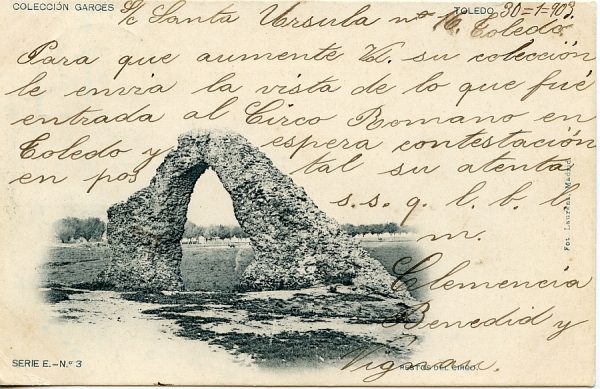 COLECCIÓN GARCES
TOLEDO 30-1-903.
S/c Santa Ursula nº Toledo
Para que aumente V. su colección
le envia la vista de lo que fué
entrada al Circo Romano en
Toledo y espera contestación
en pos tal su atenta
s. s. q. l. b. l
m.
Clemencia
Benedid y
Fot. Laurent. Madrid
SERIE E.-N.º 3
RESTOS DEL CIRCO.